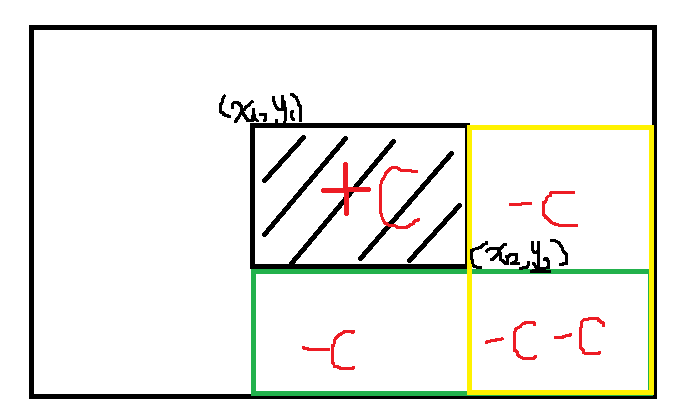 (x₁,y₁)
+C
-C
(x₂,y₂)
-C
-C -C